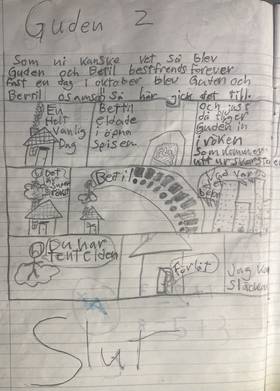 Guden 2
Som ni kanske vet så blev
Guden och Bertil bestfrends forever
fast en dag i oktober blev Guden och
Bertil osams så här gick det till.
En
Helt
Vanlig
Dag
Bertil
eldade
i öpna
Spisen.
Och just
då flyger
Guden in
i röken
som kommer
ut ur skorstenen
Det
Bertil
Vad var
det
Du har
tent elden
Förlåt
Jag ka
släcka
Slut